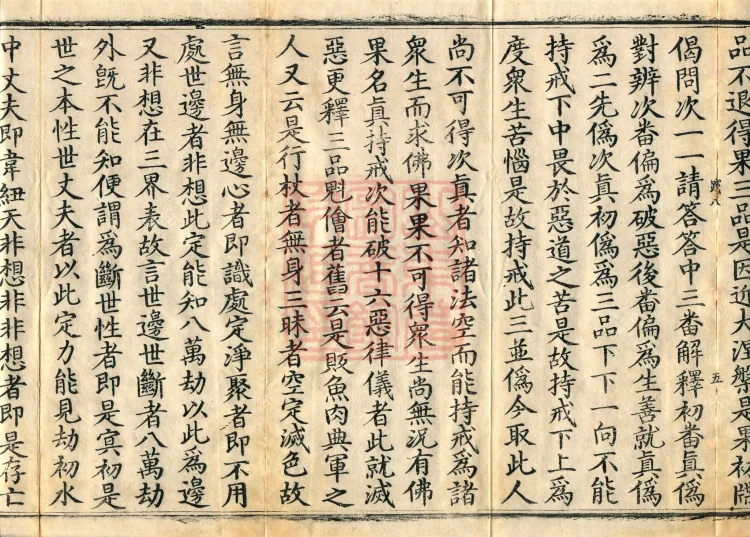 品不退得果三品是因近大涅槃是果初牒
偈問次一一請答答中三番解釋初番真僞
對辨次番偏為破惡後番偏為生善就真僞
為二先僞次真初僞為三品下下一向不能
持戒下中畏於惡道之苦是故持戒下上為
度衆生苦惱是故持戒此三並僞今取此人
尚不可得次真者知諸法空而能持戒為諸
衆生而求佛果果不可得衆生尚無況有佛
果名真持戒次能破十六惡律儀者此就滅
惡更釋三品魁儈者舊云是販魚肉典軍之
人又云是行杖者無身三昧者空定滅色故
言無身無邊心者即識處定淨聚者即不用
處世邊者非想此定能知八萬劫以此為邊
又非想在三界表故言世邊世斷者八萬劫
外旣不能知便謂為斷世性者即是冥初是
世之本性世丈夫者以此定力能見劫初水
中丈夫即韋紐天非想非非想者即是存亡
五